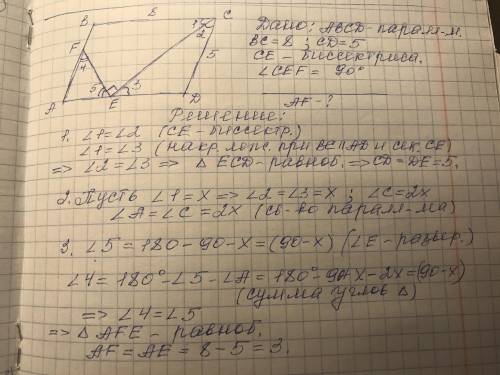 B 8 C
1 2
F
4
5 3
5
A E D
Дано: ABCD-парал-м.
BC=8; CD=5
CE - биссектриса.
∠CEF = 90°
AF-?
Решение:
1. ∠1=∠2 (CE-биссектр.)
∠1=∠3 (накр. леж. при BC∥AD и сек. CE)
=> ∠2=∠3 => Δ ECD-равноб. => CD=DE=5.
2. Пусть ∠1=x => ∠2=∠3=x; ∠C=2x
∠A=∠C=2x (св-во парал-ма)
3. ∠5=180-90-x=(90-x) (∠E-развер.)
∠4=180°-∠5-∠A=180°-90+x-2x=(90-x)
(сумма углов Δ)
=> ∠4=∠5
=> Δ AFE - равноб.
AF=AE=8-5=3.